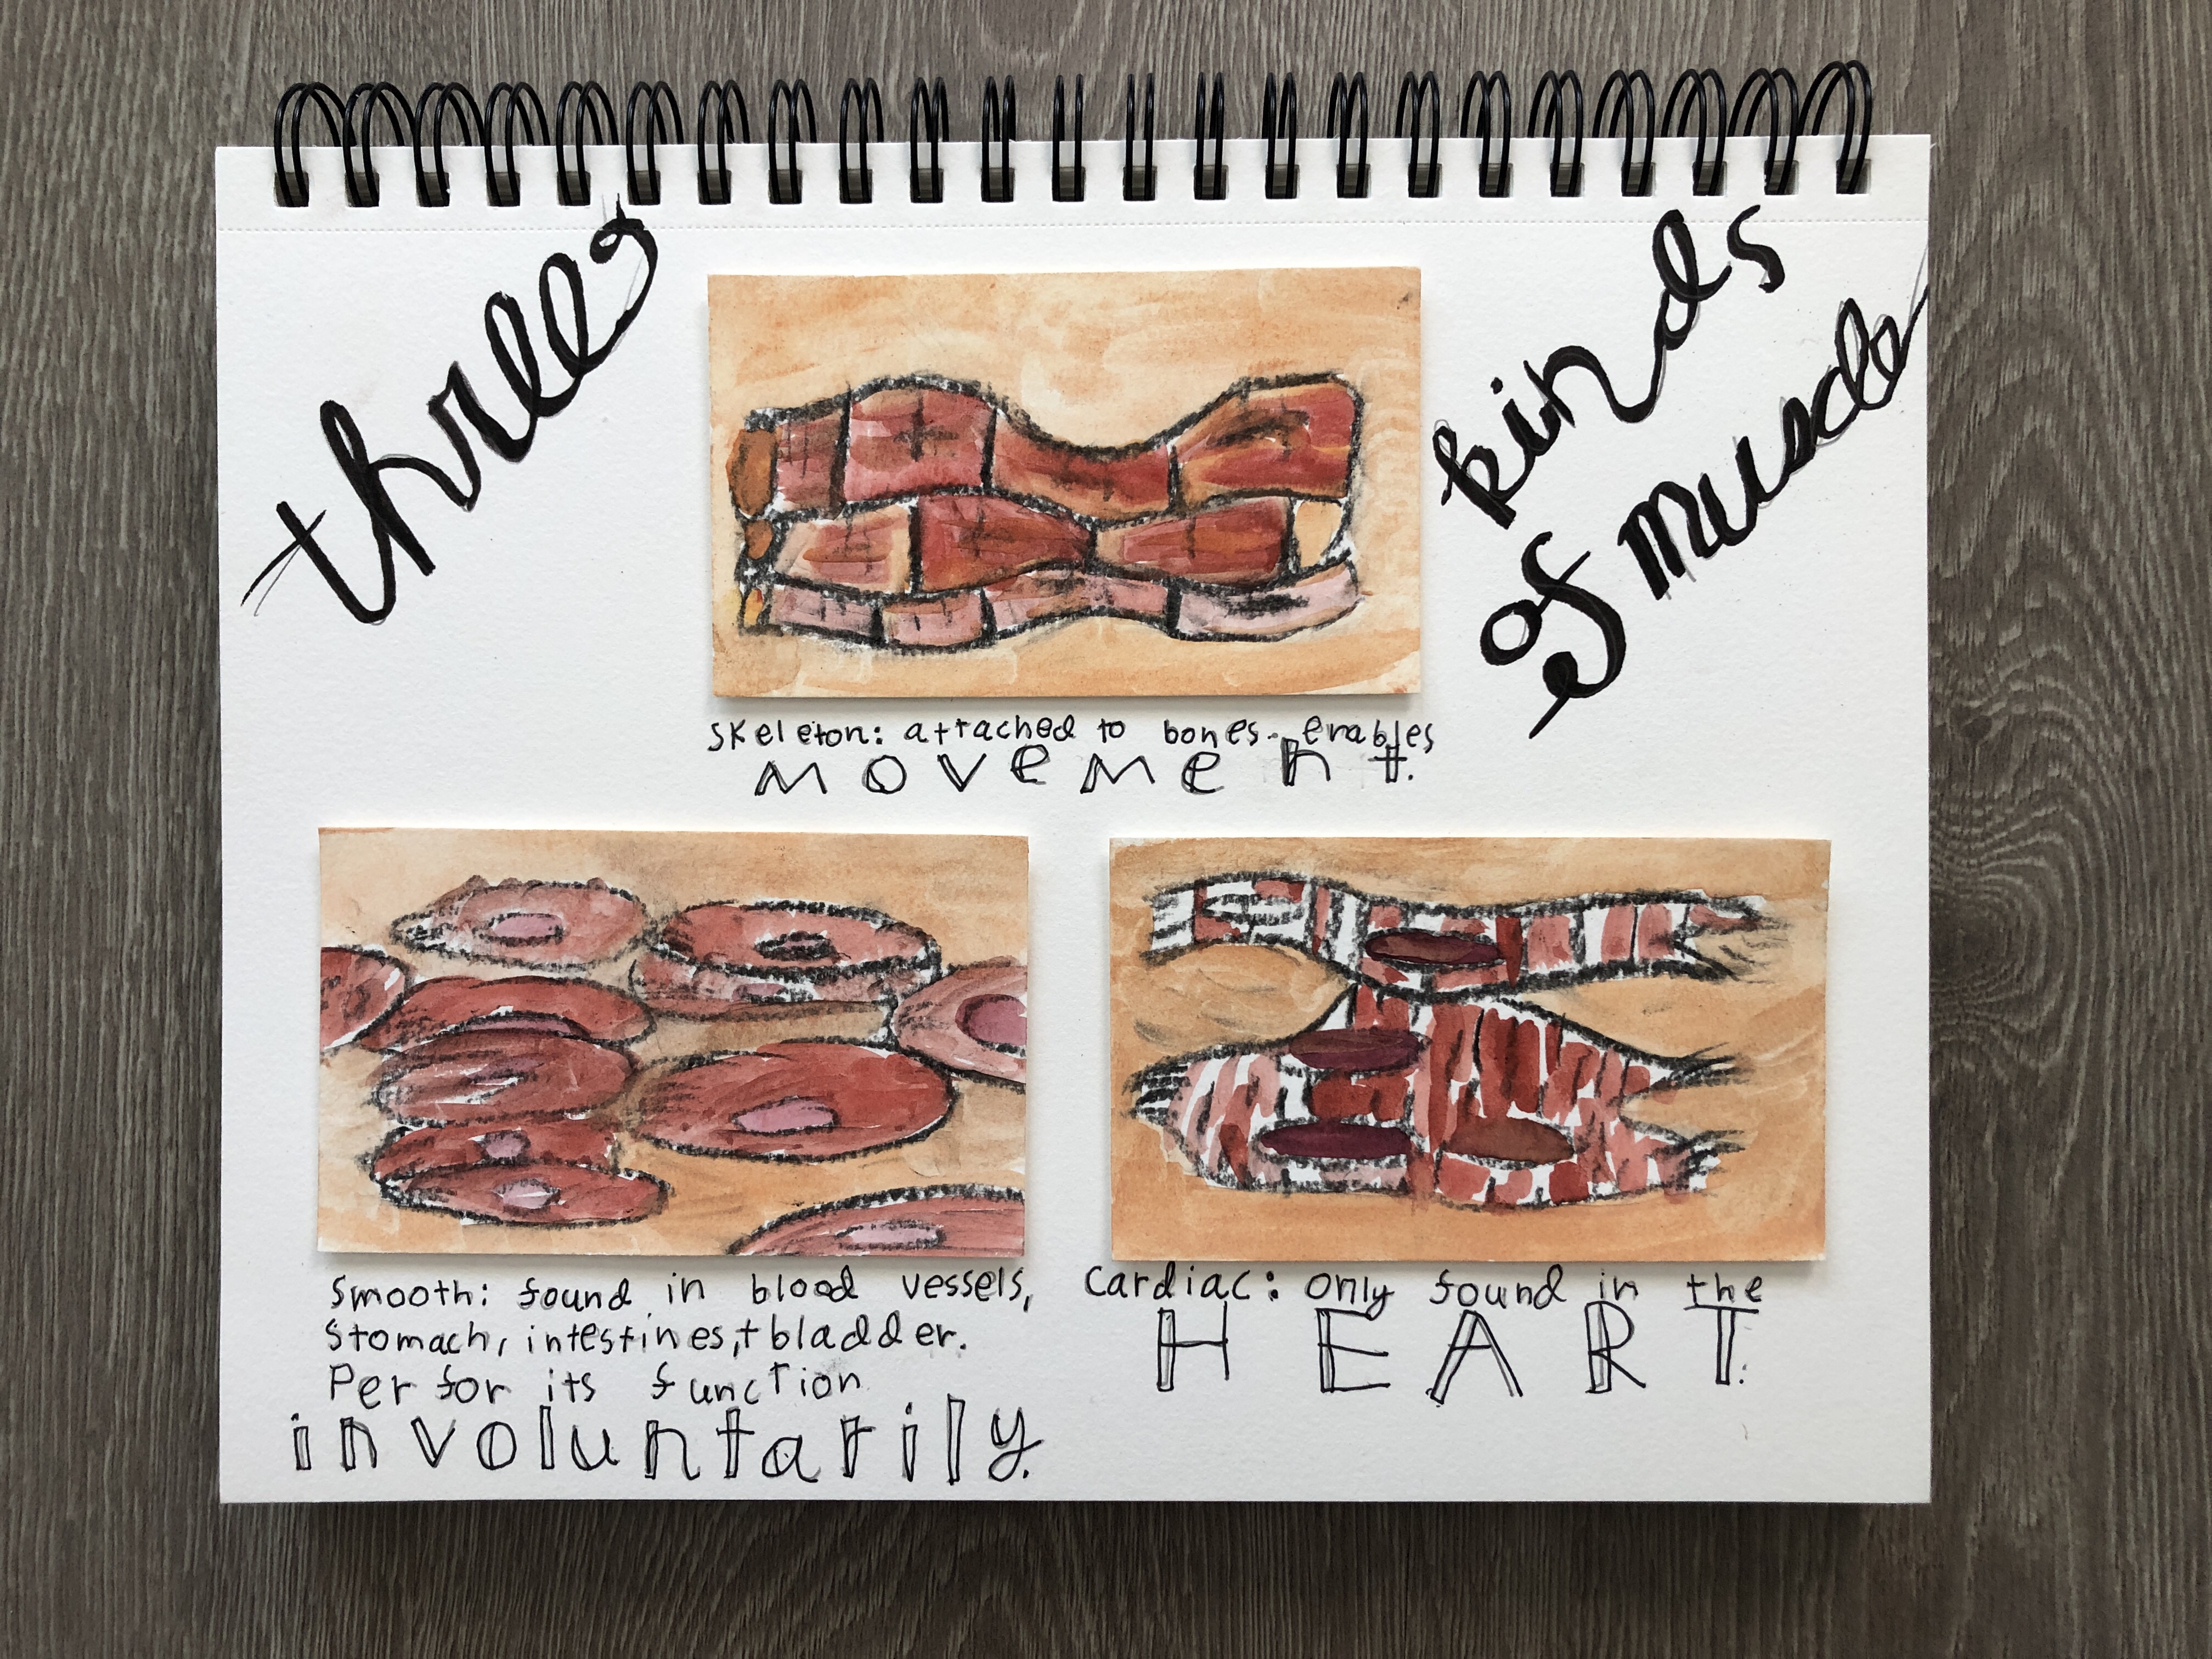 three
kinds
of Muscle
Skeleton: attached to bones. enables
movement.
Smooth: found in blood vessels,
Stomach, intestines,+ bladder.
Per for its function
involuntarily.
Cardiac: only found in the
HEART.